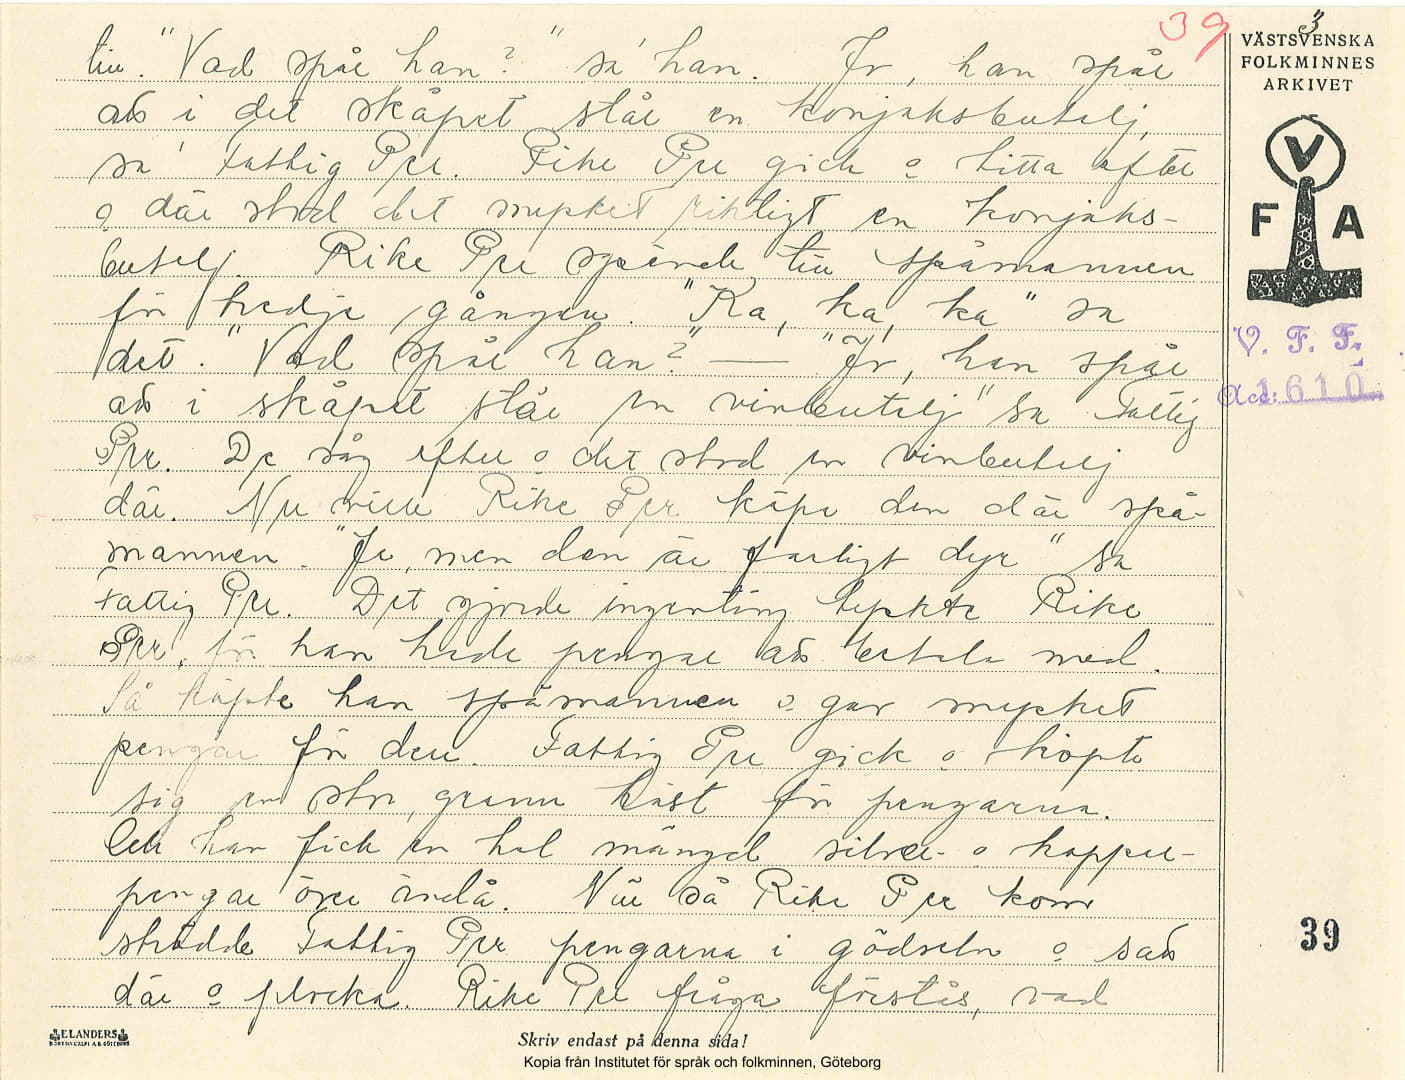 39
3
VÄSTSVENSKA
FOLKMINNES
ARKIVET
V
F A
V. F. F.
Acc: 1610
till. "Vad spår han?" sa' han. Jo, han spår
att i det skåpet står en konjaksbutelj,
sa' Fattig Per. Rike Per gick o titta efter
o där stod det mycket riktigt en konjaks-
butelj. Rike Per spände till spåmannen
för tredje gången. "Ka, ka, ka" sa
det. "Vad spår han?" — "Jo, han spår
att i skåpet står en vinbutelj" sa Fattig
Per. De såg efter o det stod en vinbutelj
där. Nu ville Rike Per köpa den där spå-
mannen. "Ja, men den är farligt dyr" sa
Fattig Per. Det gjorde ingenting tyckte Rike
Per, för han hade pengar att betala med.
Så köpte han spåmannen o gav mycket
pengar för den. Fattig Per gick o köpte
sig en stor, grann häst för pengarna.
Och han fick en hel mängd silver- o koppar-
pengar över ändå. När så Rike Per kom
strödde Fattig Per pengarna i gödseln o satt
där o plocka. Rike Per fråga förstås, vad
39
ELANDERS
BOKTRYCKERI A.B. GÖTEBORG
Skriv endast på denna sida!
Kopia från Institutet för språk och folkminnen, Göteborg